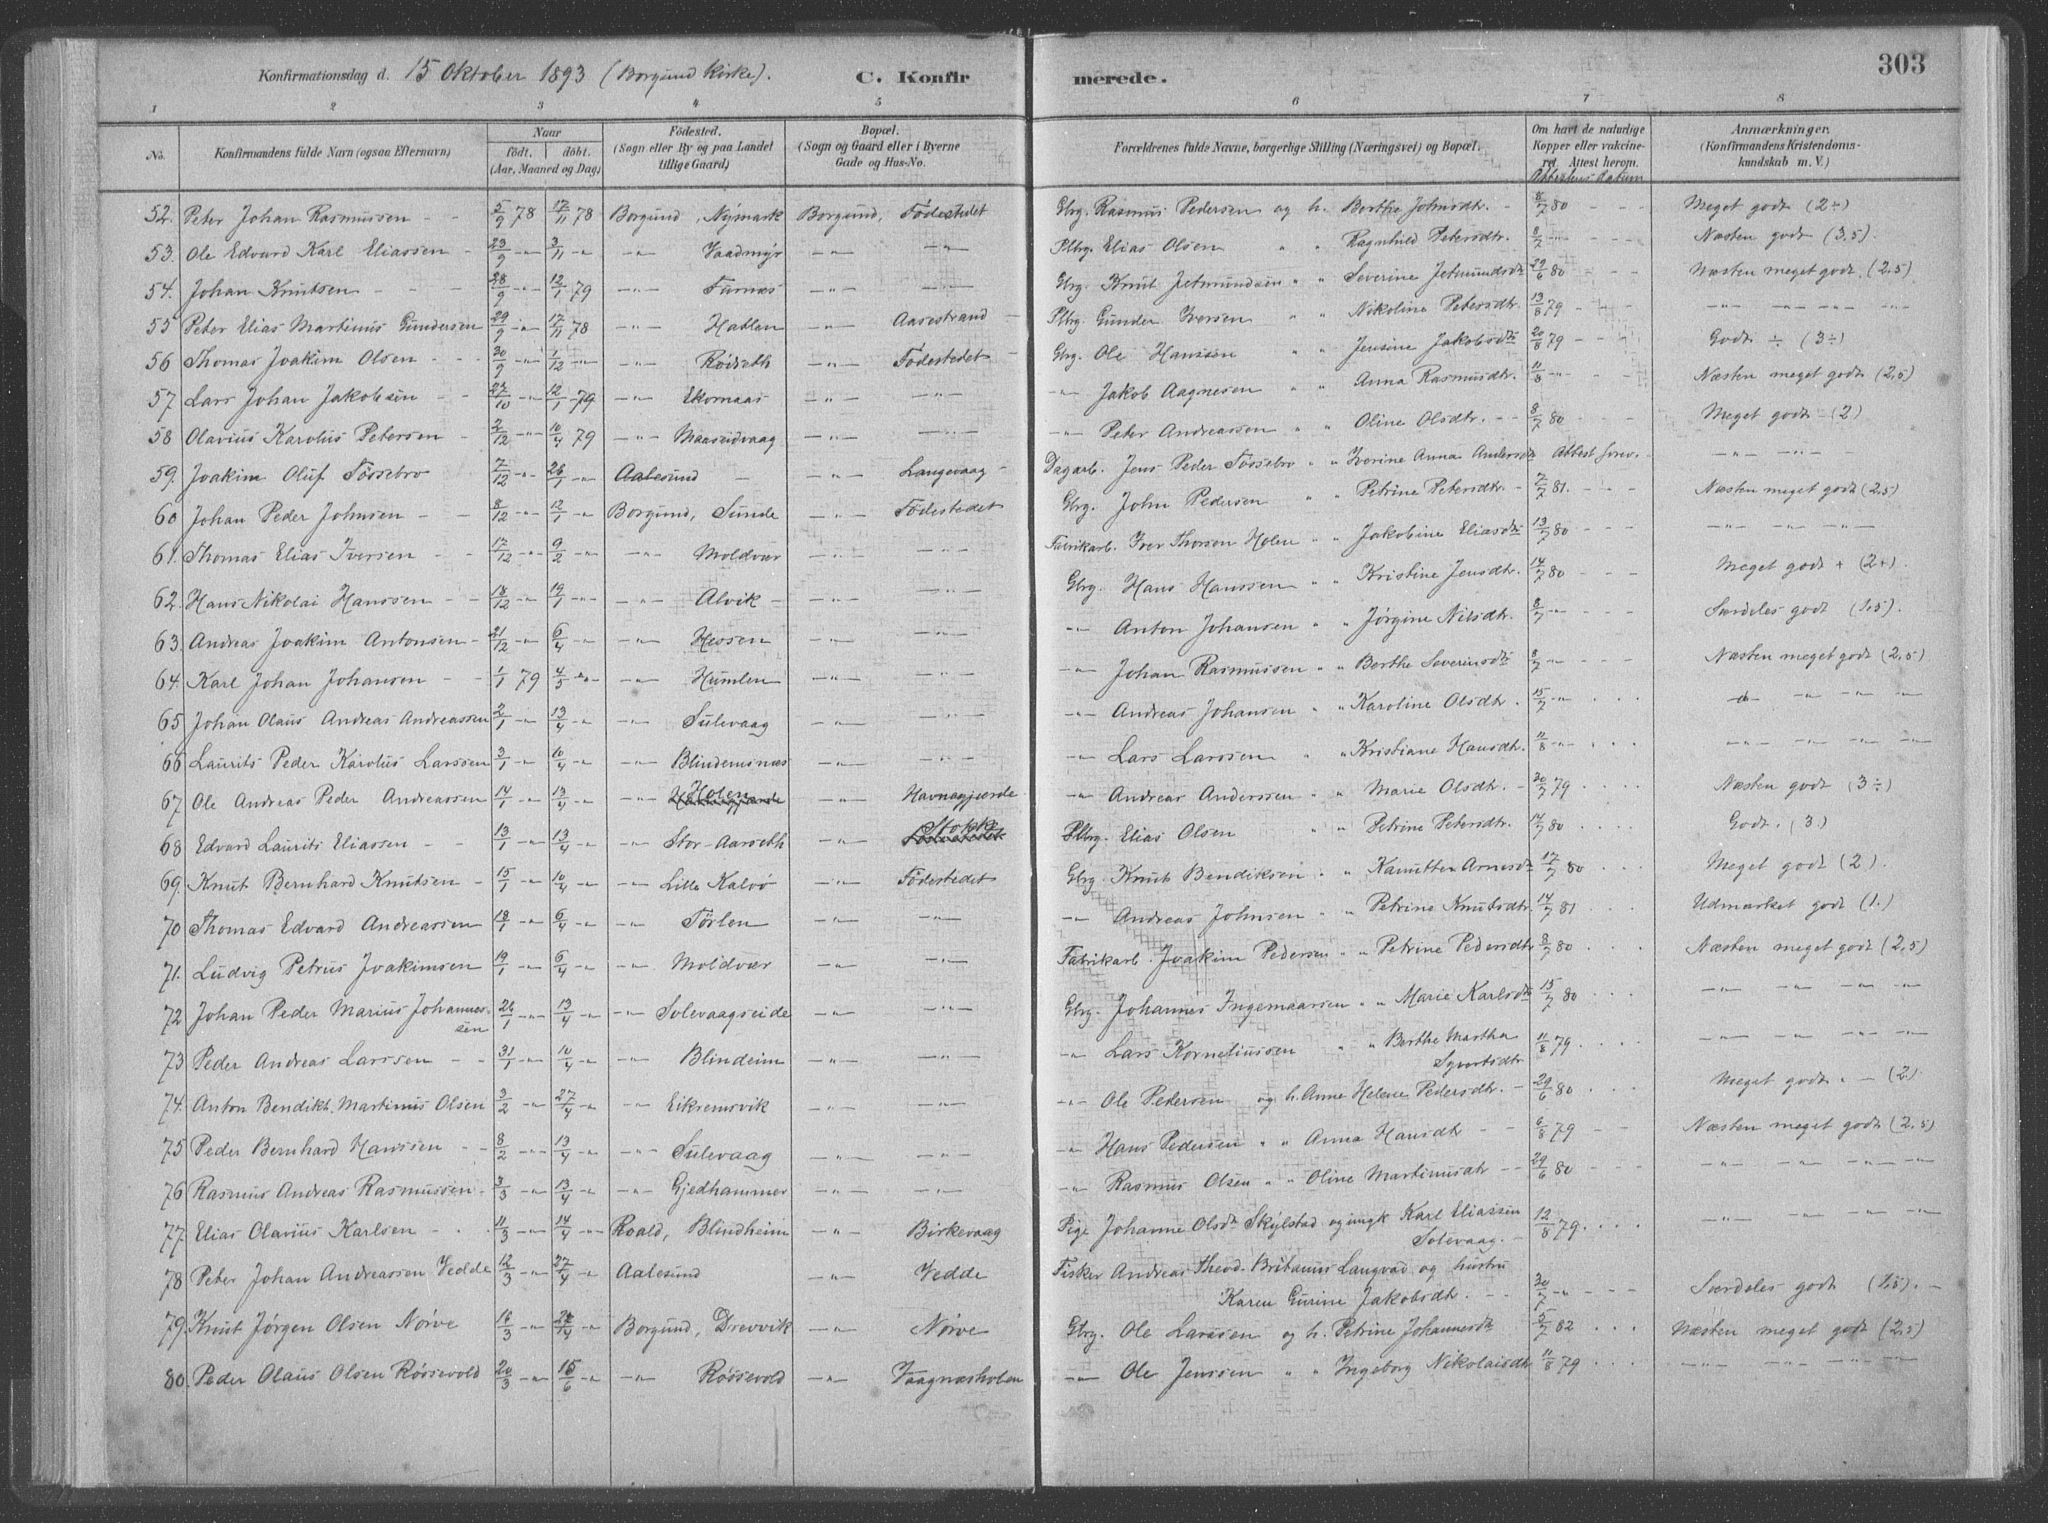 303
Konfirmationsdag d. 15 Oktober 1893 (Borgund Kirke). C. Konfirmerede.
1 2 3 4 5 6 7 8
No. Konfirmandens fulde Navn (ogsaa Efternavn) Naar født. døbt. (Aar, Maaned og Dag) Fødested. (Sogn eller By og paa Landet tillige Gaard) Bopæl. (Sogn og Gaard eller i Byerne Gade og Hus-No. Forældrenes fulde Navne, borgerlige Stilling (Næringsvei) og Bopæl. Om havt de naturlige Kopper eller vakcineret. Attest herom. Attestens datum Anmærkninger. (Konfirmandens Kristendomskundskab m. V.)
52. Peter Johan Rasmussen - - 5/9 78 17/11 78 Borgund, Nymark Borgund, Fødestedet Gbrg. Rasmus Pedersen og h. Berthe Johnsdtr. - 8/7 80 Meget godt (2÷)
53. Ole Edvard Karl Eliassen - 23/9 -"- 3/11 -"- -"- Vaadmyr -"- -"- Plbrg. Elias Olsen " " Ragnhild Petersdtr. 8/7 -"- Næsten godt (3,5)
54. Johan Knutsen - - - 28/9 -"- 12/1 79 -"- Farnæs -"- -"- Gbrg. Knut Jetmundsen " " Severine Jetmundsdtr 29/6 80 Næsten meget godt (2,5)
55 Peter Elias Martinus Gundersen 29/9 -"- 17/11 78 -"- Hatlen -"- Aasestrand - Plbrg. Gunder Iversen " " Nikoline Petersdtr. 13/8 79 -"- -"- -"- -"-
56 Thomas Joakim Olsen - - 30/9 -"- 1/12 -"- -"- Røiseth -"- Fødestedet - Gbrg. Ole Hanssen " " Jensine Jakobsdtr 20/8 79 Godt ÷ (3÷)
57 Lars Johan Jakobsen - - 27/10 -"- 12/1 79 -"- Ekornaas -"- -"- -"- Jakob Aagnesen " " Anna Rasmusdtr. 11/8 -"- Næsten meget godt (2,5)
58 Olavius Karolus Petersen - 2/12 -"- 10/4 79 -"- Maaseidvaag -"- -"- -"- Peter Andreassen " " Oline Olsdtr. - - 8/7 80 Meget godt - (2)
59. Joakim Oluf Tøssebro 7/12 -"- 26/1 -"- Aalesund - -"- Langevaag - Dagarb. Jens Peder Tøssebro " " Iverine Anna Andersdtr Attest forev. -"- -"- -"-
60 Johan Peder Johnsen - - 8/12 -"- 12/1 -"- Borgund, Sunde -"- Fødestedet Gbrg. John Pedersen " " Petrine Petersdtr. - 7/7 81. Næsten meget godt (2,5)
61. Thomas Elias Iversen - 17/12 -"- 9/2 -"- -"- Moldvær -"- -"- Fabrikarb. Iver Thorsen Holen " " Jakobine Eliasdtr 13/7 80 -"- -"- -"- -"-
62. Hans Nikolai Hanssen - - 18/12 -"- 19/1 -"- -"- Alvik - -"- -"- Gbrg. Hans Hanssen " " Kristine Jensdtr. 14/7 80 Meget godt + (2+)
63. Andreas Joakim Antonsen - 21/12 -"- 6/4 -"- -"- Hessen -"- -"- -"- Anton Johansen " " Jørgine Nilsdtr. 8/7 -"- Særdeles godt (1,5).
64. Karl Johan Johansen - - 1/1 79 4/5 -"- -"- Humlen -"- -"- -"- Johan Rasmussen " " Berthe Severinsdtr 8/7 -"- Næsten meget godt (2,5)
65 Johan Olaus Andreas Andreassen 2/1 -"- 13/4 -"- -"- Sulevaag -"- -"- -"- Andreas Johansen " " Karoline Olsdtr. 15/7 -"- -"- -"- -"- -"-
66 Laurits Peder Karolus Larssen 3/1 -"- 10/4 -"- -"- Blindemsnæs -"- -"- -"- Lars Larssen " " Kristiane Hansdtr. 11/8 -"- -"- -"- -"- -"-
67. Ole Andreas Peder Andreassen 14/1 -"- 13/4 -"- -"- Holen -"- Havnegjærde -"- Andreas Anderssen " " Marie Olsdtr. - 30/7 79 Næsten godt (3÷)
68 Edvard Laurits Eliassen - - 13/1 -"- 13/4 -"- -"- Stor-Aarseth -"- Stokke Plbrg. Elias Olsen " " Petrine Petersdtr. 14/7 80 Godt. (3.)
69. Knut Bernhard Knutsen - 15/1 -"- 10/4 -"- -"- Lille Kalvø -"- Fødestedet Gbrg. Knut Bendiksen " " Kanutten Arnesdtr 17/7 80 Meget godt (2).
70 Thomas Edvard Andreassen 18/1 -"- 6/4 -"- -"- Tørlen -"- -"- -"- Andreas Johnsen " " Petrine Knutsdtr. 14/7 81 Udmærket godt (1.)
71. Ludvig Petrus Joakimsen 19/1 -"- 6/4 -"- -"- Moldvær -"- -"- Fabrikarb. Joakim Pedersen " " Petrine Pedersdtr 8/7 80 Næsten meget godt (2,5)
72 Johan Peder Marius Johannessen 26/1 -"- 13/4 -"- -"- Solevaagseide -"- -"- Gbrg. Johannes Ingemaarsen " " Marie Karlsdtr 15/7 80 -"- -"- -"- -"-
73 Peder Andreas Larssen - - 31/1 -"- 10/4 -"- -"- Blindeim -"- -"- -"- Lars Korneliussen " " Berthe Martha Syvertsdtr 11/8 79 -"- -"- -"- -"-
74. Anton Bendikt. Martinus Olsen 3/2 -"- 27/4 -"- -"- Eikremsvik -"- -"- -"- Ole Pedersen og h. Anne Helene Pedersdtr. - 29/6 80 Meget godt - (2.)
75 Peder Bernhard Hanssen - - 8/2 -"- 13/4 -"- -"- Sulevaag -"- -"- -"- Hans Pedersen " " Anna Hansdtr - - 6/8 79 Næsten meget godt (2,5)
76 Rasmus Andreas Rasmussen - 3/3 -"- 13/4 -"- -"- Gjedhammer -"- -"- -"- Rasmus Olsen " " Oline Martinusdtr - - 29/6 80 -"- -"- -"- -"-
77. Elias Olavius Karlsen - - 11/3 -"- 14/4 -"- Roald, Blindheim -"- Birkevaag Pige Johanne Olsdtr Skylstad og ungk Karl Eliassen Solevaag. - 12/8 79. -"- -"- -"- -"-
78 Peter Johan Andreassen Vedde 12/3 -"- 27/4 -"- Aalesund -"- Vedde Fisker Andreas Theod. Britanus Langvad og hustru Karen Gurine Jakobsdtr. - - 30/7 -"- Særdeles godt (1,5). -
79. Knut Jørgen Olsen Nørve 16/3 -"- 27/4 -"- Borgund, Drevvik -"- Nørve Gbrg. Ole Larssen og h. Petrine Johannesdtr 5/7 82 Næsten meget godt (2,5)
80. Peder Olaus Olsen Røssevold 20/3 -"- 15/6 -"- -"- Røssevold -"- Vaagnæsholen -"- Ole Jenssen " " Ingeborg Nikolaisdtr 11/8 79 -"- -"- -"- -"-